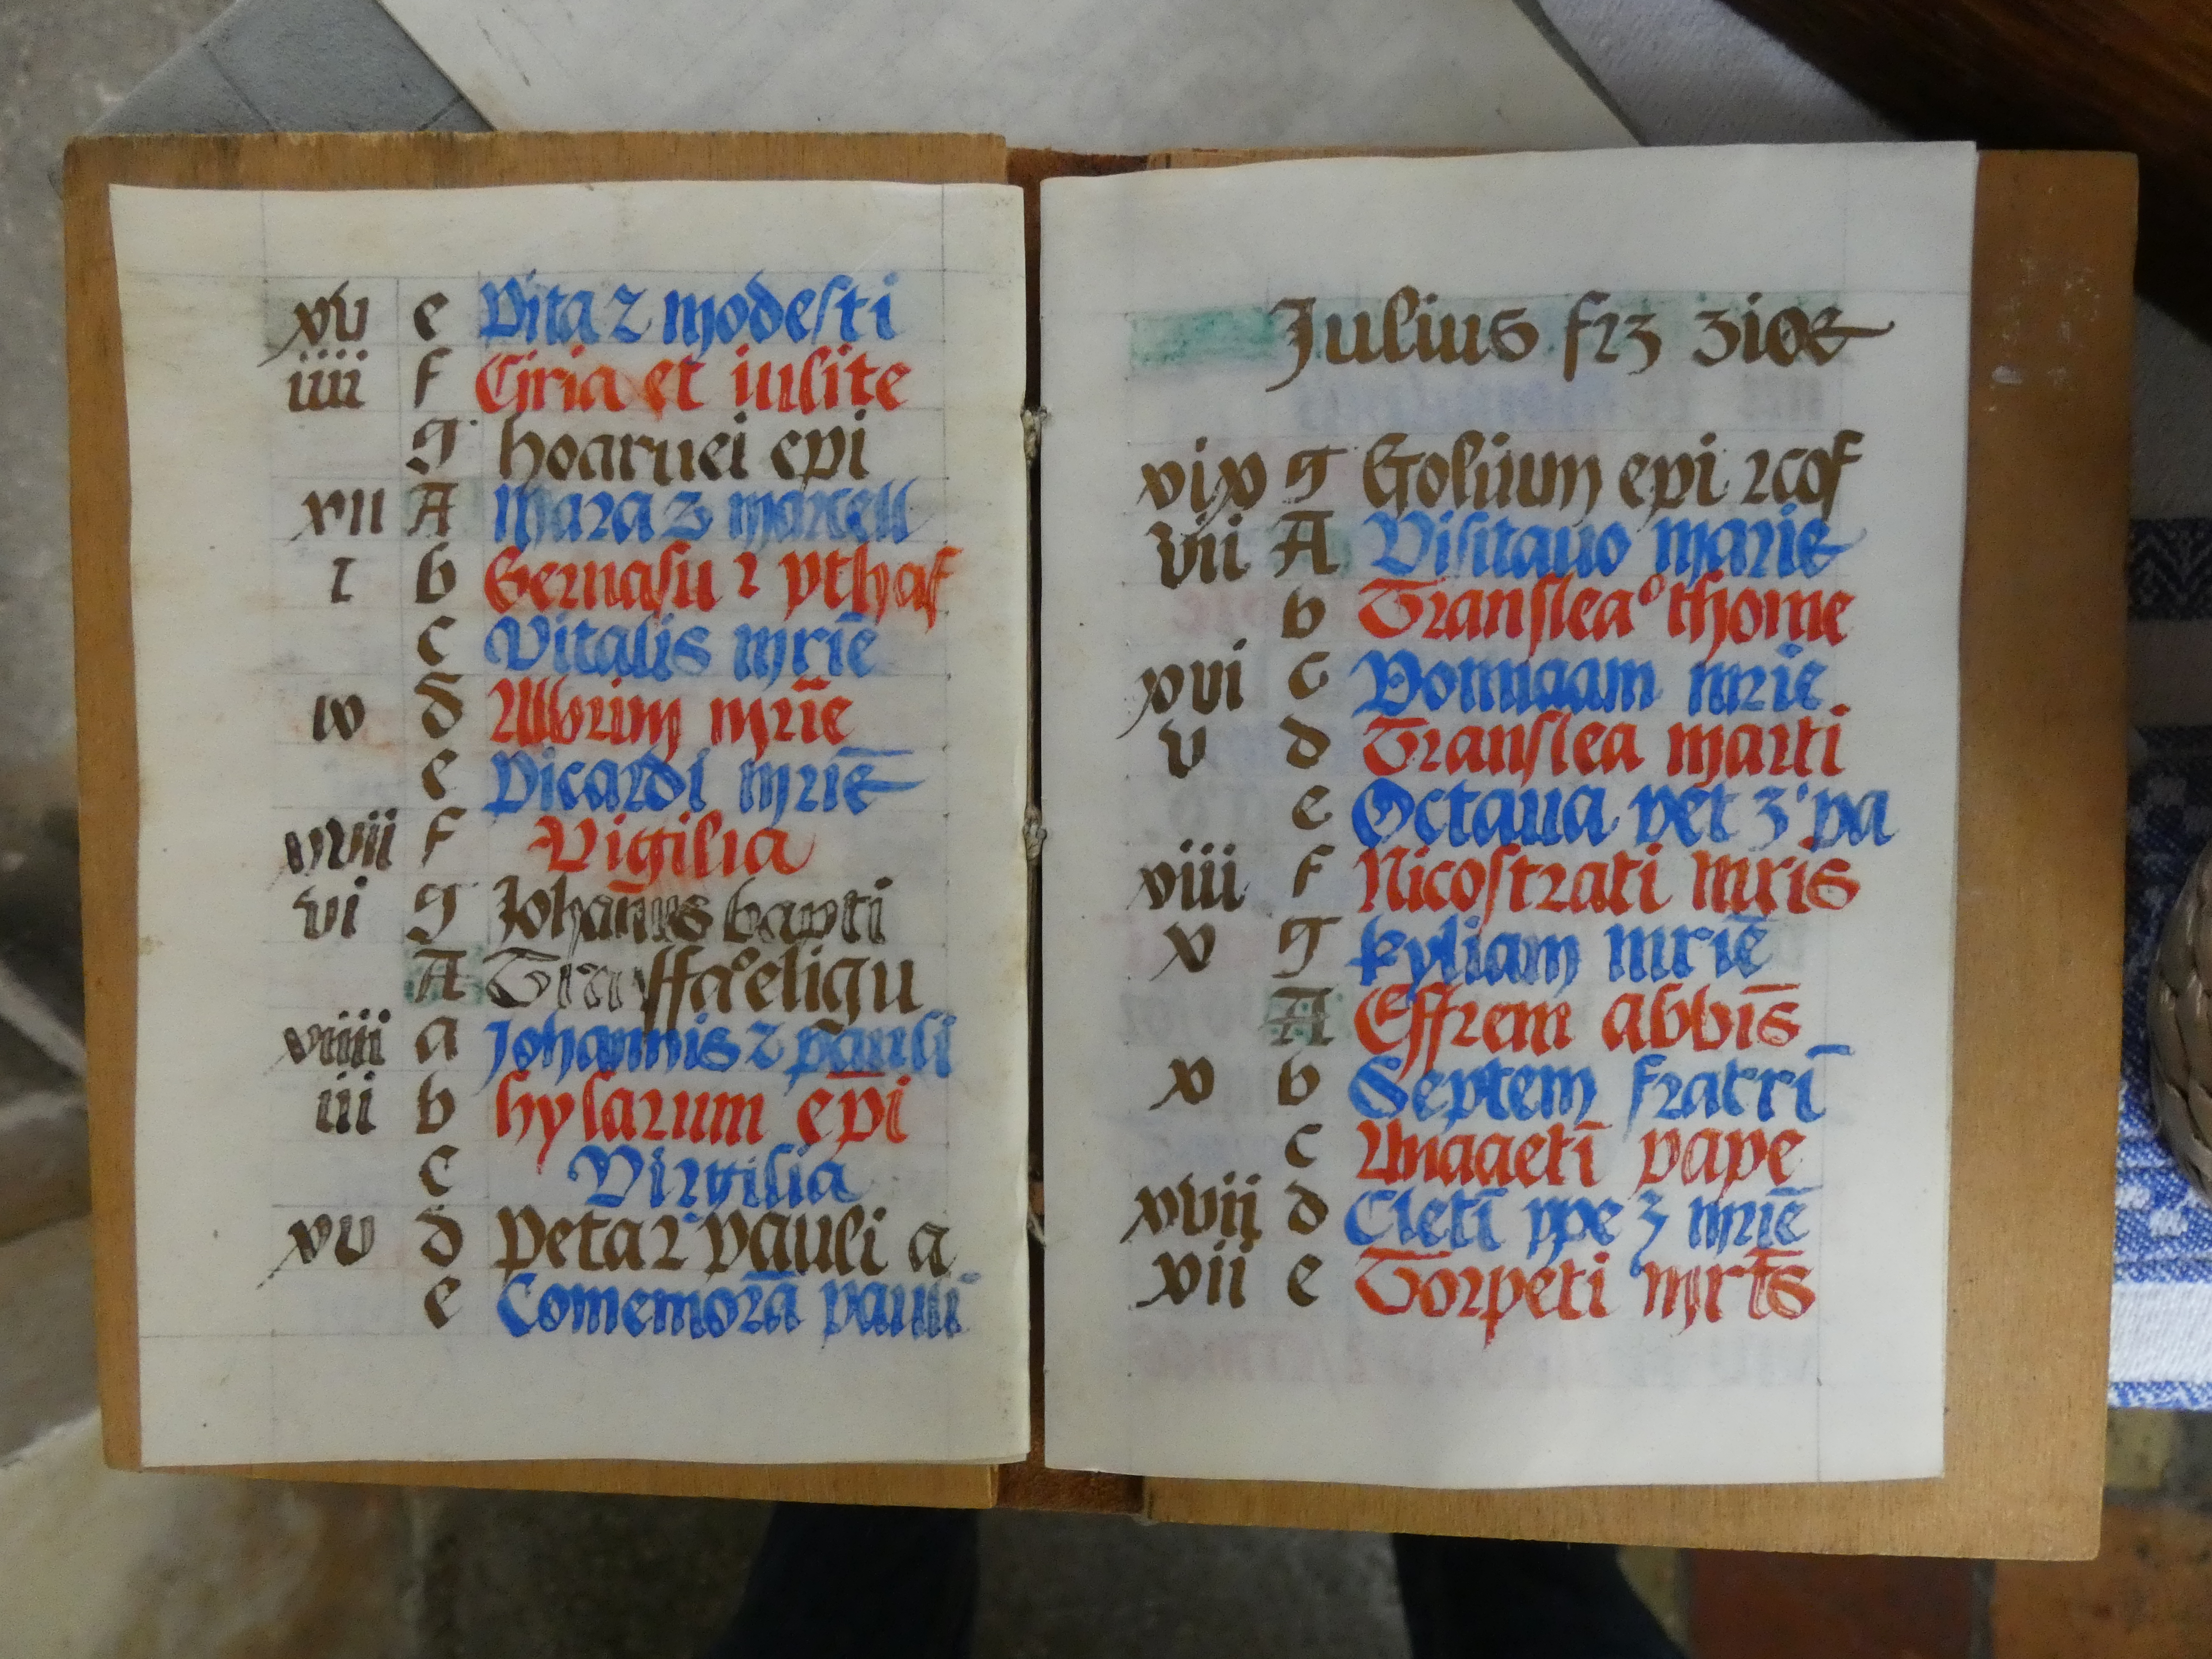 xv e Vita 2 modesti
iiii f Ciria et iulite
g hoaruei epi
xii A Mara 3 marcell
i b Geruasu 2 pthaf
c Vitalis mriē
ix d Albrim mriē
e Picardi mriē
xvii f Vigilia
vi g Johan̄is bapti
A Tra sffa°eligu
viiii a Johannis 2 pauli
iii b hylarum ep̄i
c Virgilia
xv d Peta 2 pauli a
e Comemorā pauli
Julius frz
xix g epi 2cof
vii A Visitauo marie
b Translea° thome
xvi c mriē
v d Translea marti
e Octaua pet 3 pa
viii f Nicostrati mris
x g kyliam mriē
A Effrem abbīs
x b Septem fratrī
c Anacletī pape
xvii d Cletī ppe 3 mriē
xii e Torpeti mrt̄s